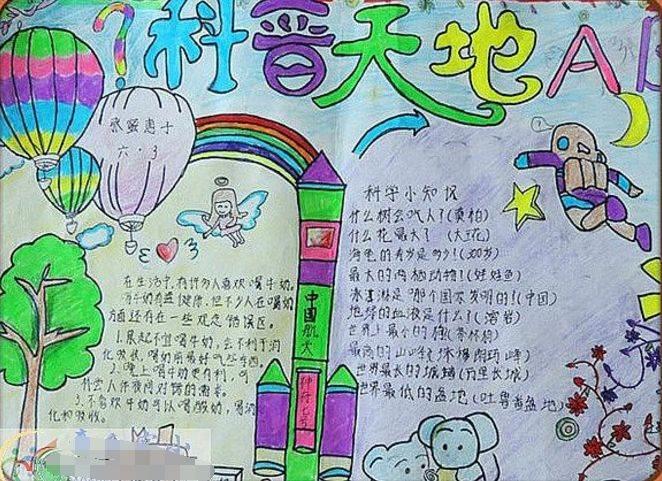 科普天地
六·三
科学小知识
什么树会吃人?(奠柏)
什么花最大?(大王花)
海龟的寿岁是多少?(300岁)
最大的两栖动物?(娃娃鱼)
冰淇淋是哪个国家发明的?(中国)
地球的血液是什么?(溶岩)
世界上最小的
最高的山峰?(珠穆朗玛峰)
世界最长的城墙(万里长城)
世界最低的盆地(吐鲁番盆地)
在生活中,有许多人喜欢喝牛奶。
喝牛奶有益健康,但不少人在喝奶
方面还存在一些观念错误区。
1.晨起不宜喝牛奶,会不利于消
化吸收,喝奶前最好吃些东西。
2.晚上喝牛奶更有利,可
3.不喜欢牛奶可以喝酸奶,易消
化和吸收。
中国航天
神舟七号